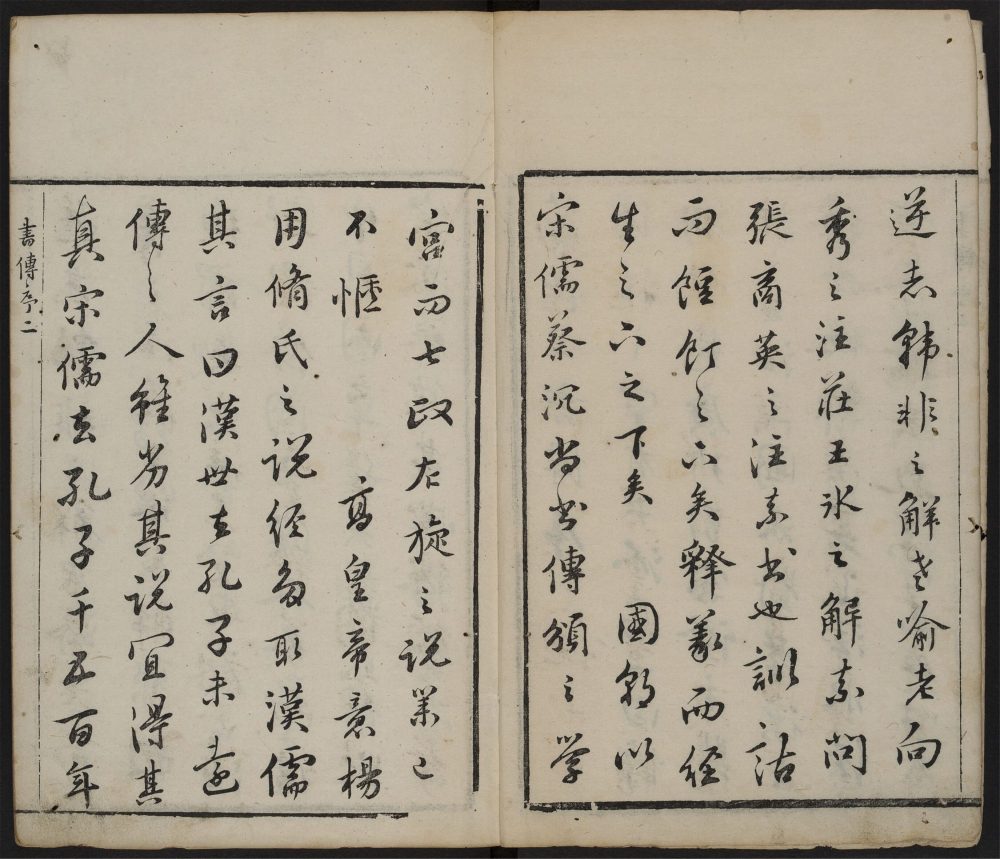 逆志韓非之解老喻老向
秀之注莊王氷之解素問
張商英之注素書也訓詁
而餖飣之下矣釋義而經
生之下之下矣　國朝以
宋儒蔡沉尚書傳頒之學
官而七政左旋之説業已
不愜　高皇帝意楊
用脩氏之説經多取漢儒
其言曰漢世去孔子未遠
傳之人雖劣其説宜得其
真宋儒去孔子千五百年
書傳序二